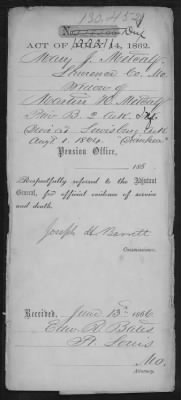 130.451
No.
ACT OF JULY 14, 1862.
Mary J. Metcalf
Lawrence Co. Mo.
Widow of
Martin R. Metcalf
Priv B. 2 Ark.
Died at Lewisburg Ark
Augt 1. 1864
Pension Office,
186
Respectfully referred to the Adjutant
General, for official evidence of service
and death.
Joseph H Barrett
Commissioner.
Received, June 13th 1866
Edw. R. Bates
St Louis
Mo.
Attorney.